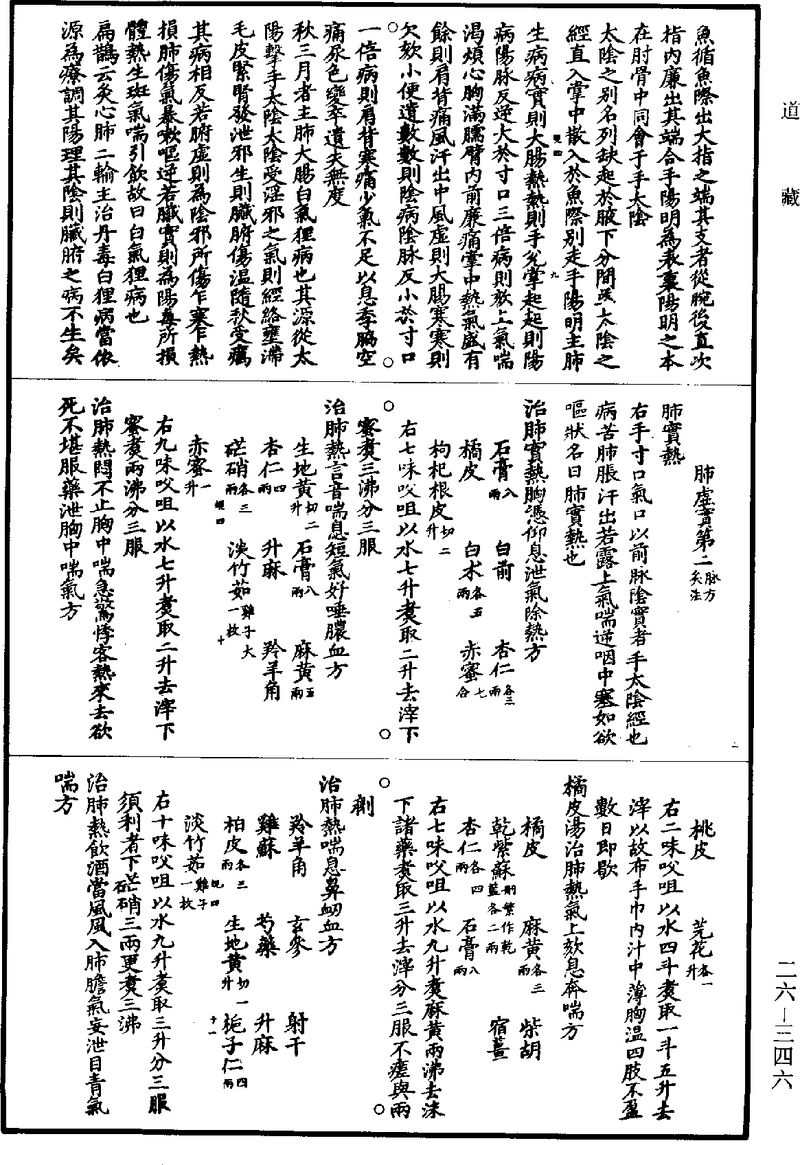 道藏
魚循魚際出大指之端其支者從腕後直次
指內廉出其端合手陽明為表裏陽明之本
在肘骨中同會于手太陰
太陰之別名列缺起於腋下分間並太陰之
經直入掌中散入於魚際別走手陽明主肺
生病病實則大腸熱熱則手兊掌起起則陽
病陽脉反逆大於寸口三倍病則欬上氣喘
渴煩心胸滿臑臂內前廉痛掌中熱氣盛有
餘則肩背痛風汗出中風虛則大腸寒寒則
欠欬小便遺數數則陰病陰脉反小於寸口
一倍病則肩背寒痛少氣不足以息季脇空
痛尿色變卒遺失無度
秋三月者主肺大腸白氣狸病也其源從太
陽擊手太陰太陰受淫邪之氣則經絡壅滯
毛皮緊腎發泄邪生則臟腑傷溫隨秋受癘
其病相反若腑虛則為陰邪所傷乍寒乍熱
損肺傷氣暴嗽嘔逆若臟實則為陽毒所損
體熱生斑氣喘引飲故曰白氣狸病也
扁鵲云灸心肺二輸主治丹毒白狸病當依
源為療調其陽理其陰則臟腑之病不生矣
肺虛實第二脉方灸法
肺實熱
右手寸口氣口以前脉陰實者手太陰經也
病苦肺脹汗出若露上氣喘逆咽中塞如欲
嘔狀名曰肺實熱也
治肺實熱胸憑仰息泄氣除熱方
石膏八兩 白前 杏仁各三兩
橘皮 白朮各五兩 赤蜜七合
枸杞根皮切二升
右七味㕮咀以水七升煮取二升去滓下
蜜煮三沸分三服
治肺熱言音喘息短氣好唾膿血方
生地黃切二升 石膏八兩 麻黃五兩
杏仁四兩 升麻 羚羊角
芒硝各三兩 淡竹茹雞子大一枚
赤蜜一升
右九味㕮咀以水七升煮取二升去滓下
蜜煮兩沸分三服
治肺熱悶不止胸中喘急驚悸客熱來去欲
死不堪服藥泄胸中喘氣方
桃皮 芫花各一升
右二味㕮咀以水四斗煮取一斗五升去
滓以故布手巾內汁中薄胸溫四肢不盈
數日即歇
橘皮湯治肺熱氣上欬息奔喘方
橘皮 麻黃各三兩 柴胡
乾紫蘇一作乾藍各二兩 宿薑
杏仁各四兩 石膏八兩
右七味㕮咀以水九升煮麻黃兩沸去沫
下諸藥煮取三升去滓分三服不瘥與兩
劑
治肺熱喘息鼻衂血方
羚羊角 玄參 射干
雞蘇 芍藥 升麻
柏皮各三兩 生地黃切一升 梔子仁四兩
淡竹茹雞子一枚
右十味㕮咀以水九升煮取三升分三服
須利者下芒硝三兩更煮三沸
治肺熱飲酒當風風入肺膽氣妄泄目青氣
喘方
二六—三四六